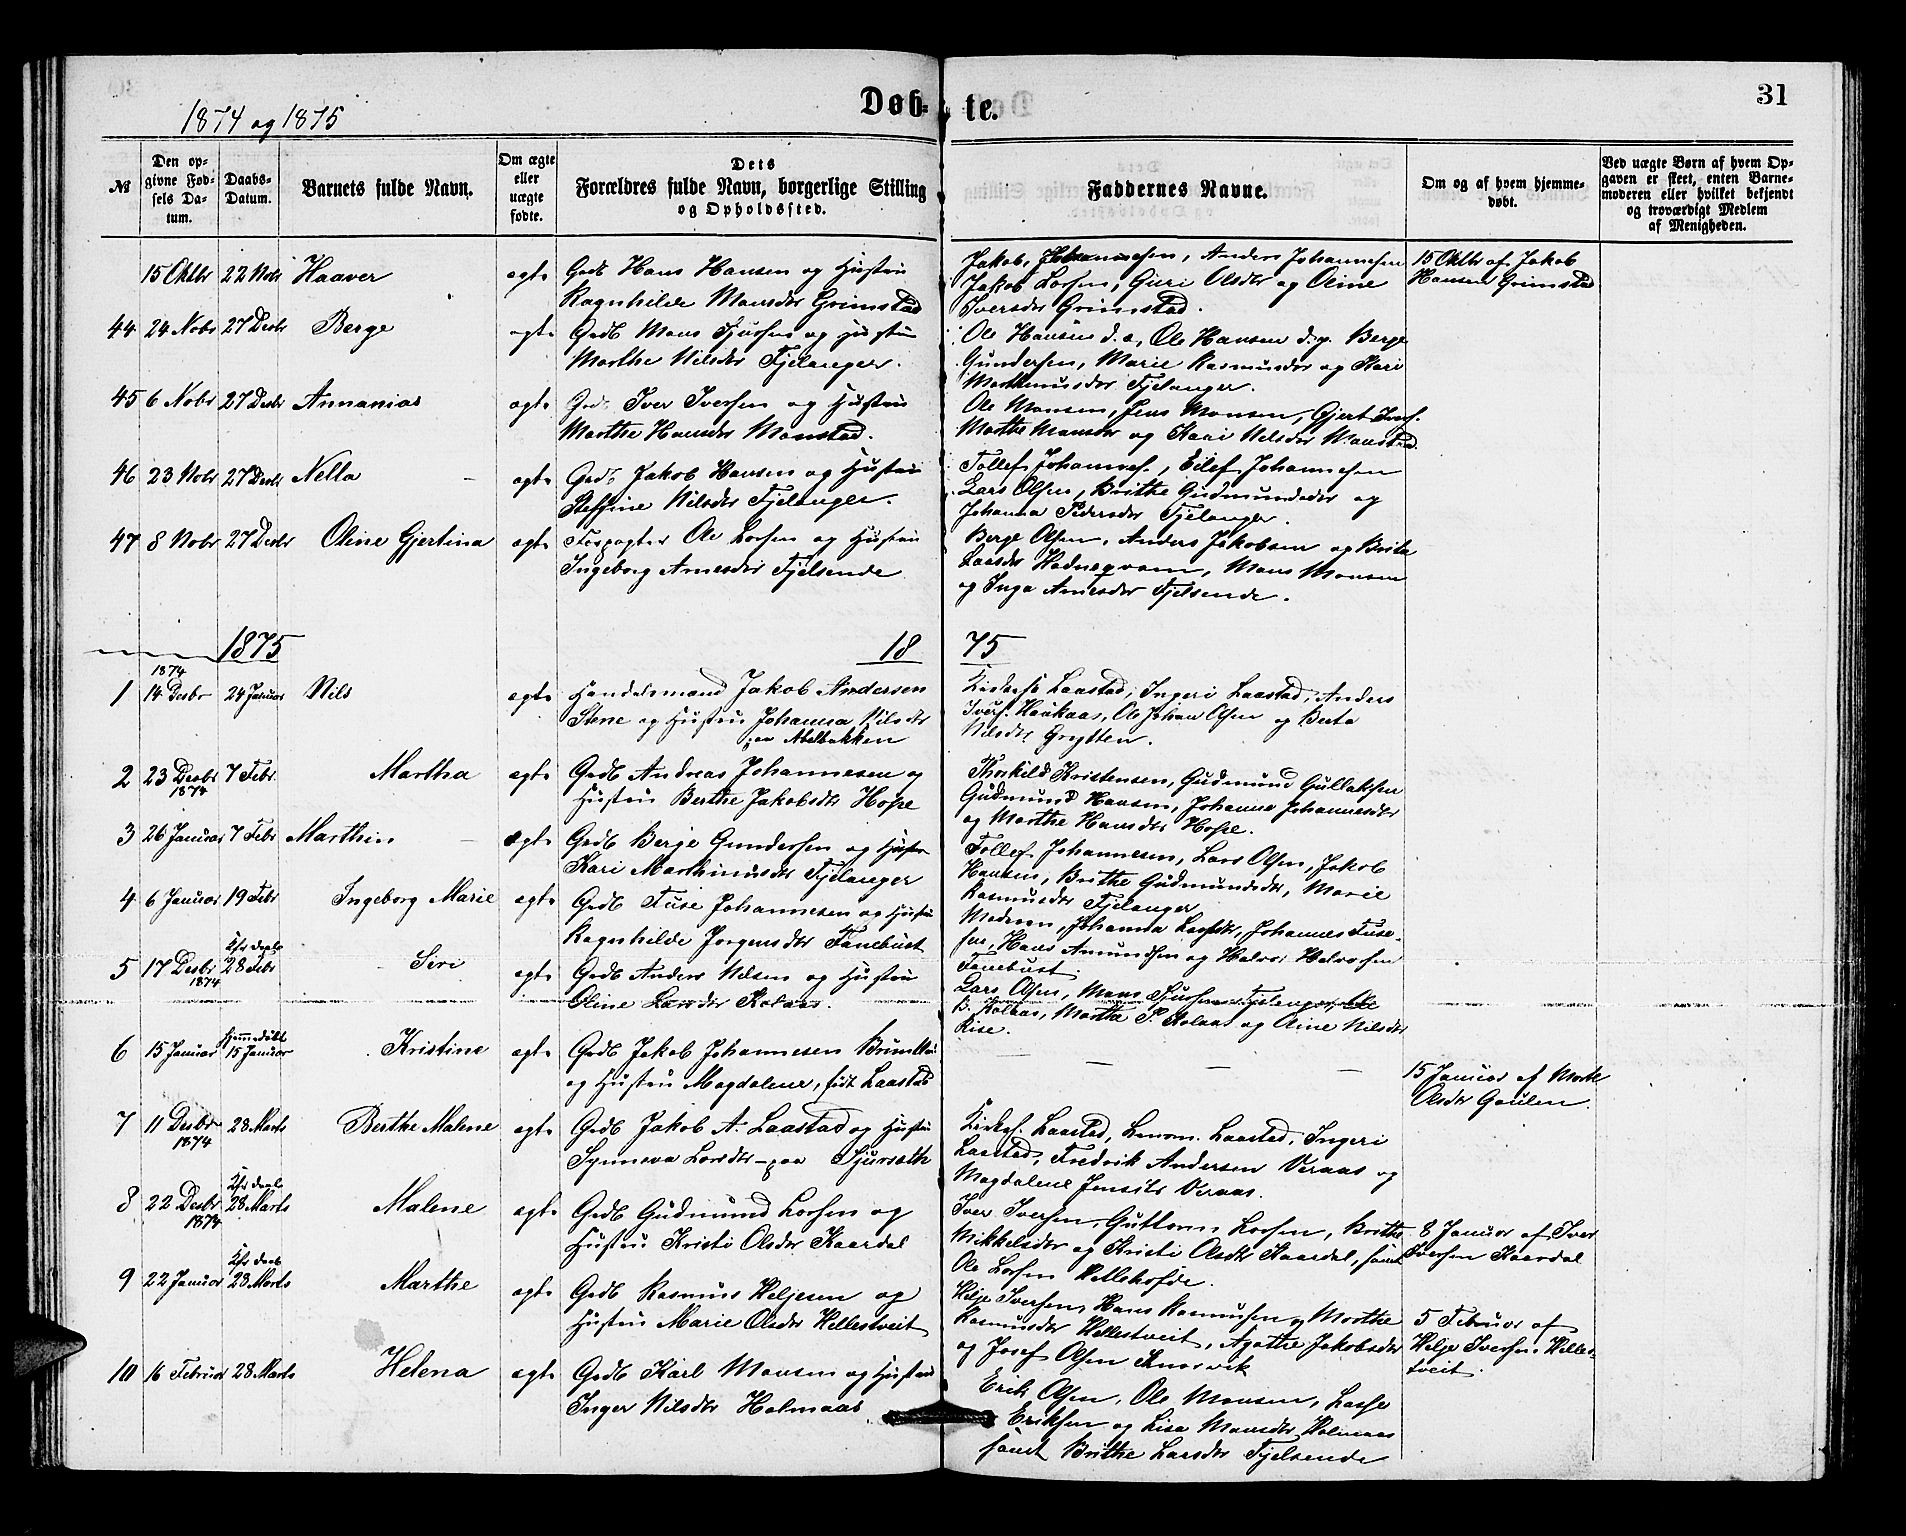 1874 og 1875
Døb-
te.
31
No
Den op-
givne Fød-
sels Da-
tum.
Daabs-
Datum.
Barnets fulde Navn.
Om ægte
eller
uægte
fødte.
Dets
Forældres fulde Navn, borgerlige Stilling
og Opholdssted.
Faddernes Navne.
Om og af hvem hjemme-
døbt.
Ved uægte Børn af hvem Op-
gaven er skeet, enten Barne-
moderen eller hvilket bekjendt
og troværdigt Medlem
af Menigheden.
15 Oktbr 22 Nobr Haaver ægte Gdb Hans Hansen og Hustru
Ragnhilde Monsdtr Grimstad
Jakob Johannesen, Anders Johannesen
Jakob Larsen, Guri Olsdtr og Oline
Iversdtr Grimstad.
15 Oktbr af Jakob
Hansen Grimstad
44 24 Nobr 27 Desbr Berge ægte Grdb Mons Sjursen og Hustru
Marthe Nilsdtr Fjelanger.
Ole Hansen d. æ, Ole Hansen d. y. Berge
Gundersen, Marie Rasmusdtr og Kari
Marthinusdtr Fjelanger.
45 6 Nobr 27 Desbr Annanias ægte Grdb Iver Iversen og Hustru
Marthe Hansdtr Monstad.
Ole Monsen, Jens Monsen, Gjert Ivers.
Marthe Monsdtr og Kari Nilsdtr Monstad.
46 23 Nobr 27 Desbr Nella ægte Grdb Jakob Hansen og Hustru
Steffine Nilsdtr Fjelanger.
Tollef Johannes., Eilef Johannesen
Lars Olsen, Brithe Gudmundsdtr og
Johanna Pedersdtr Fjelanger.
47 8 Nobr 27 Desbr Oline Gjertina ægte Forpagter Ole Larsen og Hustru
Ingeborg Arnesdtr Fjelsende
Berge Olsen, Anders Jakobsen og Brita
Larsdtr Hodneqvam, Mons Monsen
og Inga Arnesdtr Fjelsende.
1875
18
75
1874
1 14 Desbr 24 Januar Nils ægte Handelsmand Jakob Andersen
Stene og Hustru Johanna Nilsdtr
paa Abelbakken
Kirkes. Laastad, Ingeri Laastad, Anders
Ivers. Haukaas, Ole Johan Olsen og Berta
Nilsdtr Grytten.
2 23 Desbr 1874 7 Febr. Martha ægte Grdb Andreas Johannesen og
Hustru Berthe Jakobsdtr Hope
Thorkild Kristensen, Gudmund Gullaksen
Gudmund Hansen, Johanne Johannesdtr
og Marthe Hansdtr Hope.
3 26 Januar 7 Febr Marthin ægte Grdb Berge Gundersen og Hustru
Kari Marthinusdtr Fjelanger
Tollef Johannesen, Lars Olsen, Jakob
Hansen, Brithe Gudmundsdtr, Marie
Rasmusdtr Fjelanger
4 6 Januar 19 Febr Ingeborg Marie ægte Grdb Fuse Johannesen og Hustru
Ragnhilde Jørgensdtr Fanebust
Moderen, Johanna Larsdtr, Johannes Fuse-
sen, Hans Amundsen og Halvor Halvorsen
Fanebust.
5 17 Desbr 1874 Kfr daab 28 Febr Siri ægte Grdb Anders Nilsen og Hustru
Oline Larsdtr Kolaas.
Lars Olsen, Mons Sjursen Fjelanger, Ole
B. Kolaas, Marthe P. Kolaas og Oline Nilsdtr
Rise.
6 15 Januar Hjemmedøbt 15 Januar Kristine ægte Grdb Jakob Johannesen
og Hustru Magdalene, født Laastad
15 Januar af Marte
Olsdtr Gaulen.
7 11 Desbr 1874 28 Marts Berthe Malene ægte Grdb Jakob A. Laastad og Hustru
Synneva Larsdtr paa Sjursæth
Kirkes. Laastad, Lensm. Laastad, Ingeri
Laastad, Fredrik Andersen Veraas og
Magdalene Jensdtr Veraas.
8 22 Desbr 1874 Kfr daab 28 Marts Malene ægte Grdb Gudmund Larsen og
Hustru Kristi Olsdtr Kaardal
Iver Iversen, Guttorm Larsen, Brithe
Mikkelsdtr og Kristi Olsdtr Kaardal, samt
Ole Larsen
8 Januar af Iver
Iversen Kaardal
9 22 Januar Kfr daab 28 Marts Marthe ægte Grdb Rasmus Heljesen og
Hustru Marie Olsdtr Hellestveit
Helje Iversen, Hans Rasmussen og Marthe
Rasmusdtr Hellestveit, Agathe Jakobsdtr
og Josef Olsen Knarvik
5 Februar af
Helje Iversen Helles-
tveit.
10 16 Februar 28 Marts Helena ægte Grdb Karl Monsen og Hustru
Inger Nilsdtr Holmaas
Erik Olsen, Ole Monsen, Lasse
Eriksen og Lisa Monsdtr Holmaas
samt Brithe Larsdtr Fjelsende